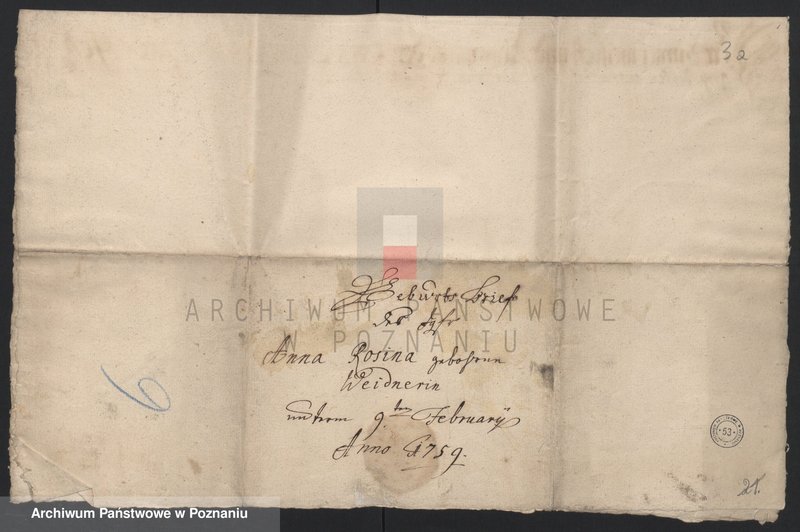 3a
Geburts Brief
der
Anna Rosina gebohrnen
Weidnerin
unterm 9ten February
Anno 1759.
ARCHIWUM PAŃSTWOWE
W POZNANIU
6
53
21.
Archiwum Państwowe w Poznaniu